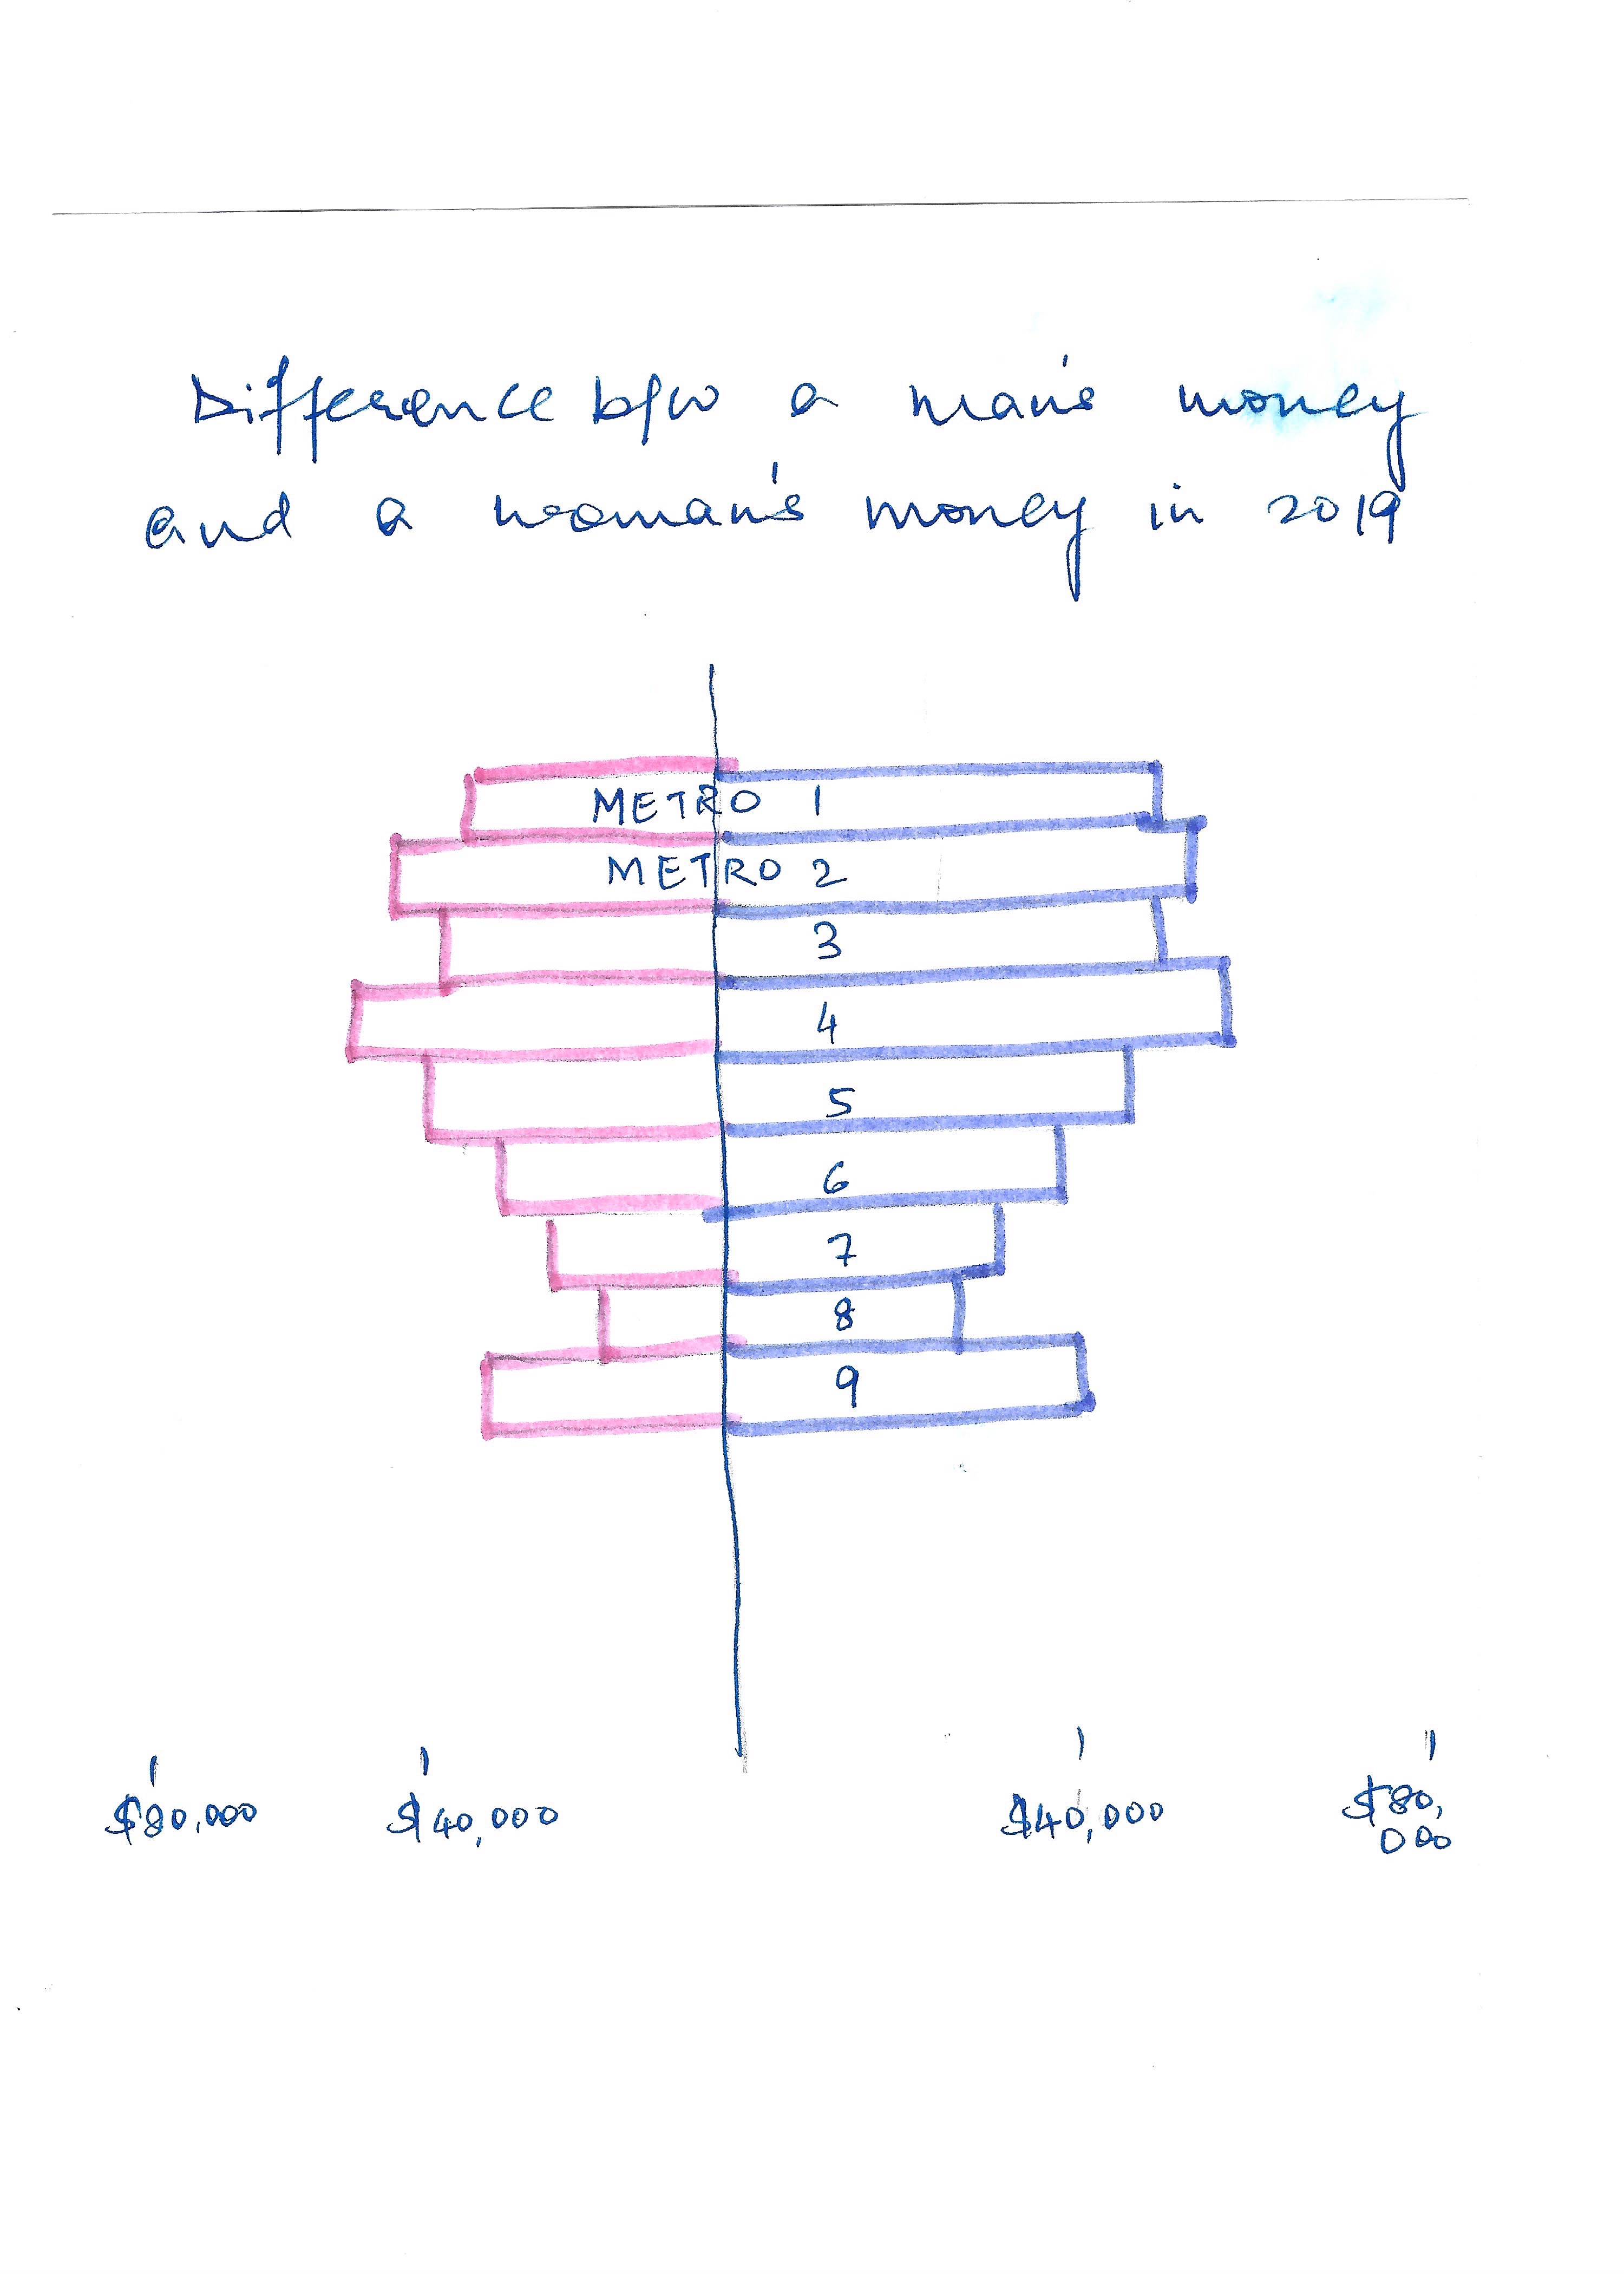 Difference b/w a man's money
and a woman's money in 2019
METRO 1
METRO 2
3
4
5
6
7
8
9
$80,000 $40,000 $40,000 $80,
000